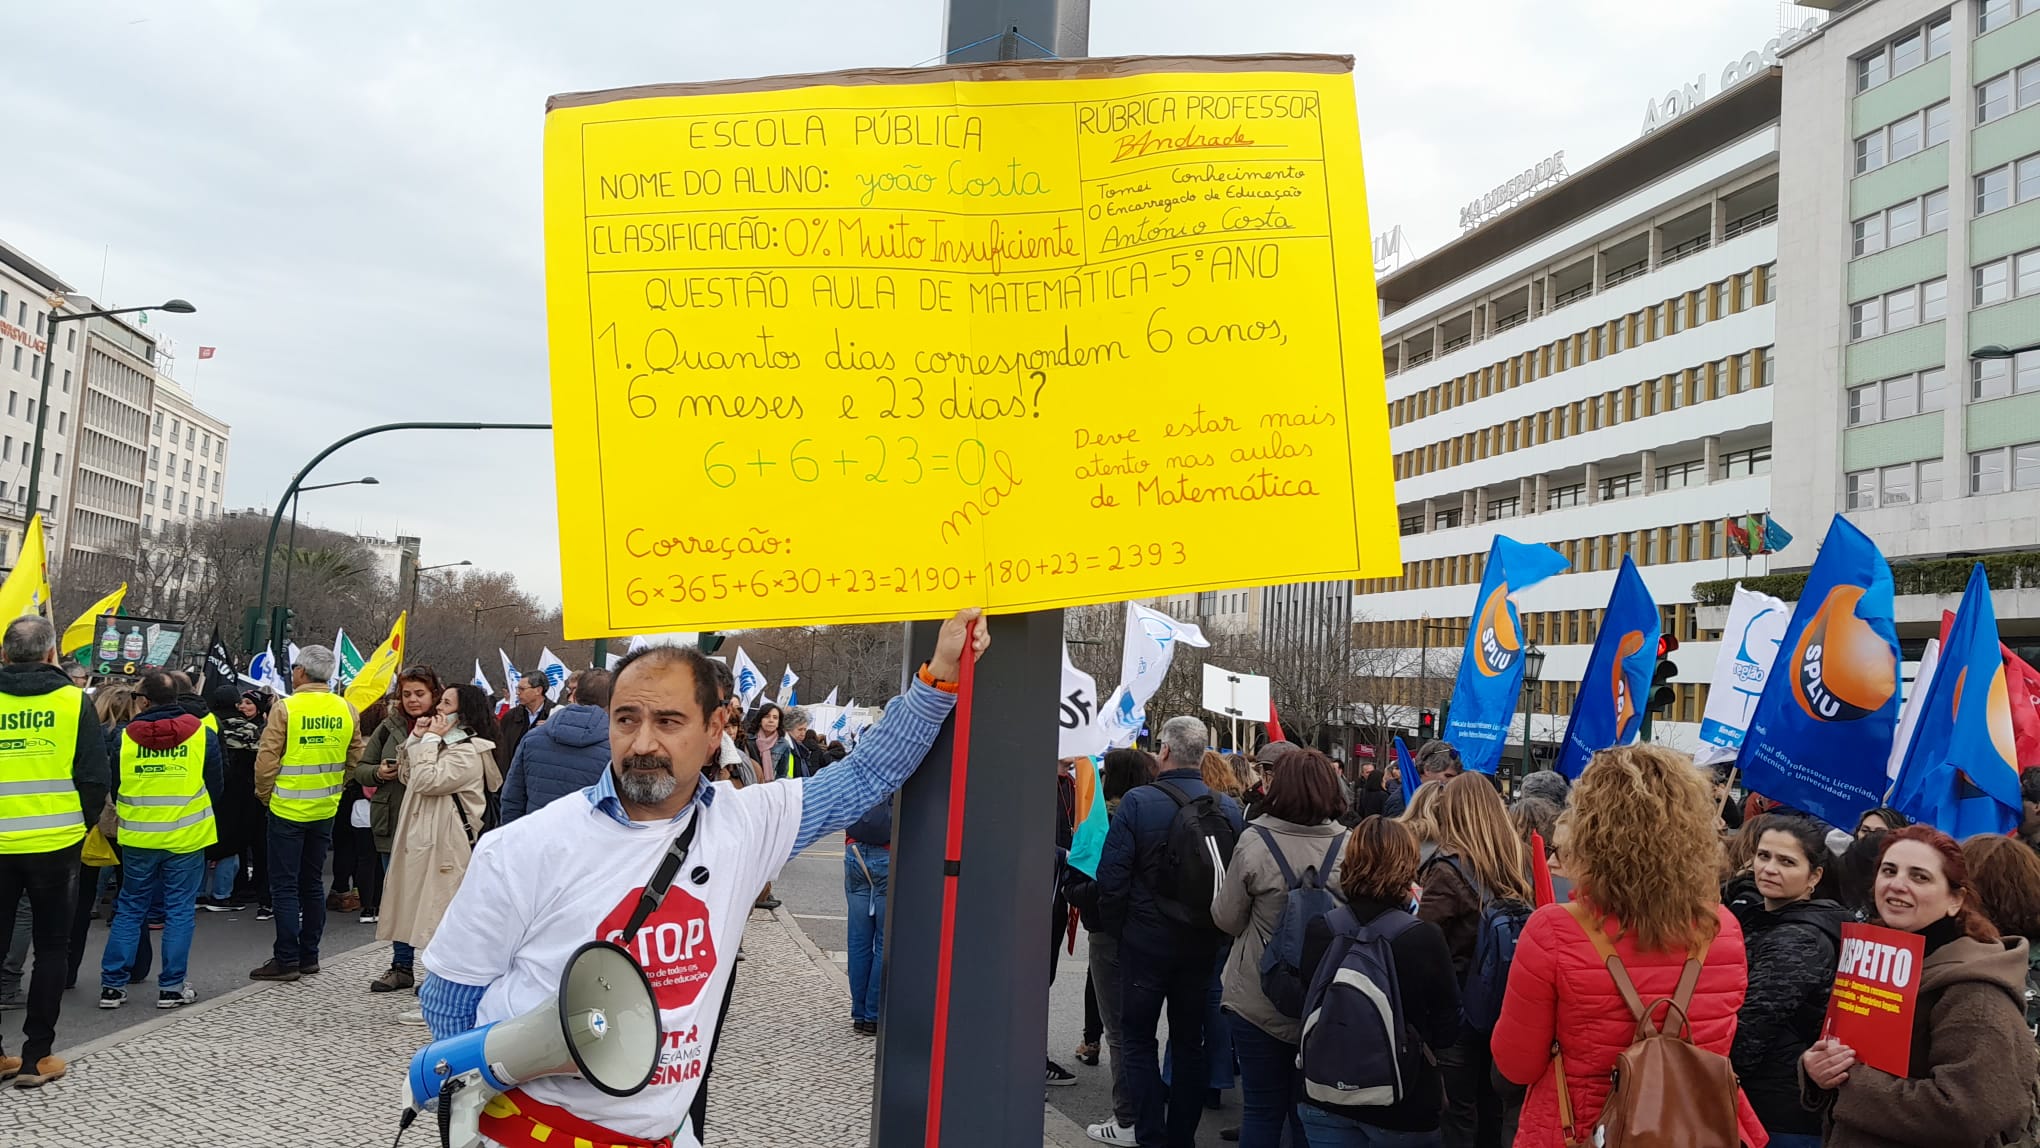 ESCOLA PÚBLICA
NOME DO ALUNO: yoão Costa
CLASSIFICAÇÃO: 0% Muito Insuficiente
RÚBRICA PROFESSOR
BAndrade
Tomei Conhecimento
O Encarregado de Educação
António Costa
QUESTÃO AULA DE MATEMÁTICA-5º ANO
1. Quantos dias correspondem 6 anos,
6 meses e 23 dias?
6+6+23=0
mal
Deve estar mais
atento nas aulas
de Matemática
Correção:
6×365+6×30+23=2190+180+23=2393
AON
249 LIBERDADE
Justiça
Justiça
Justiça
6 6
S.TO.P.
SPLIU
SPLIU
SPLIU
região
RESPEITO